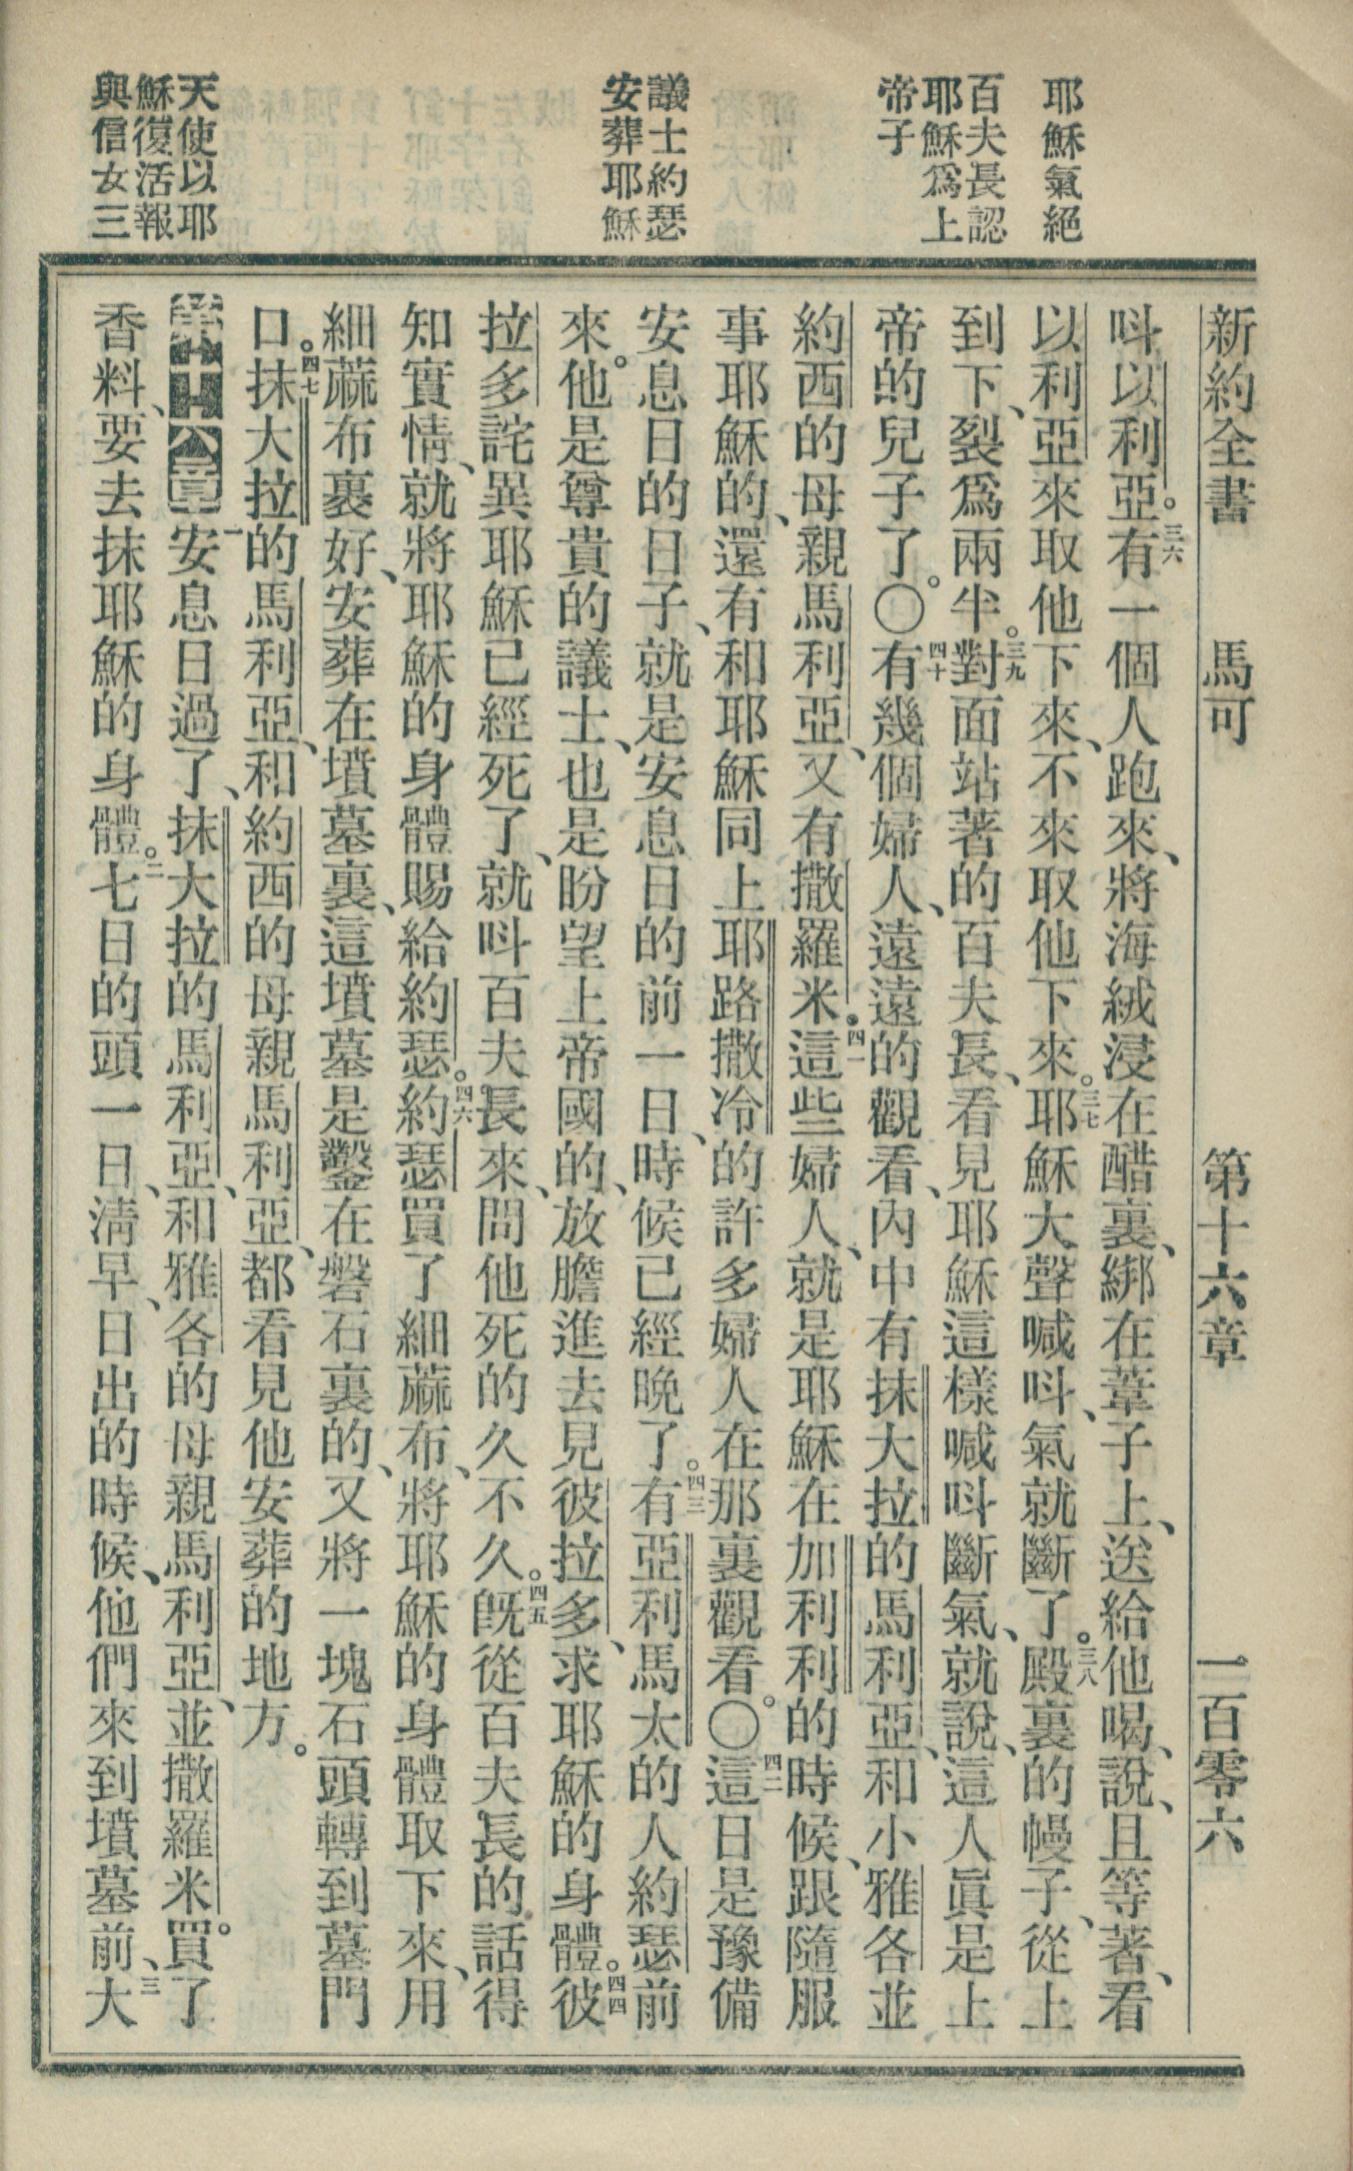 耶穌氣絕
百夫長認
耶穌爲上
帝子
議士約瑟
安葬耶穌
天使以耶
穌復活報
與信女三
新約全書 馬可 第十六章 一百零六
呌以利亞。三六有一個人跑來、將海絨浸在醋裏、綁在葦子上、送給他喝、說、且等著、看
以利亞來取他下來、不來取他下來。三七耶穌大聲喊呌、氣就斷了。三八殿裏的幔子、從上
到下、裂爲兩半。三九對面站著的百夫長、看見耶穌這樣喊呌斷氣、就說、這人眞是上
帝的兒子了。〇四十有幾個婦人、遠遠的觀看、內中有抹大拉的馬利亞、和小雅各並
約西的母親馬利亞、又有撒羅米。四一這些婦人、就是耶穌在加利利的時候、跟隨服
事耶穌的、還有和耶穌同上耶路撒冷的許多婦人在那裏觀看。〇四二這日是豫備
安息日的日子、就是安息日的前一日、時候已經晚了。四三有亞利馬太的人約瑟前
來。他是尊貴的議士、也是盼望上帝國的、放膽進去見彼拉多、求耶穌的身體。四四彼
拉多詫異耶穌已經死了、就呌百夫長來、問他死的久不久。四五旣從百夫長的話得
知實情、就將耶穌的身體賜給約瑟。四六約瑟買了細蔴布、將耶穌的身體取下來、用
細蔴布裹好、安葬在墳墓裏、這墳墓是鑿在磐石裏的、又將一塊石頭轉到墓門
口。四七抹大拉的馬利亞、和約西的母親馬利亞、都看見他安葬的地方。
第十六章 一安息日過了、抹大拉的馬利亞、和雅各的母親馬利亞、並撒羅米。買了
香料、要去抹耶穌的身體。二七日的頭一日、淸早、日出的時候、他們來到墳墓前、三大